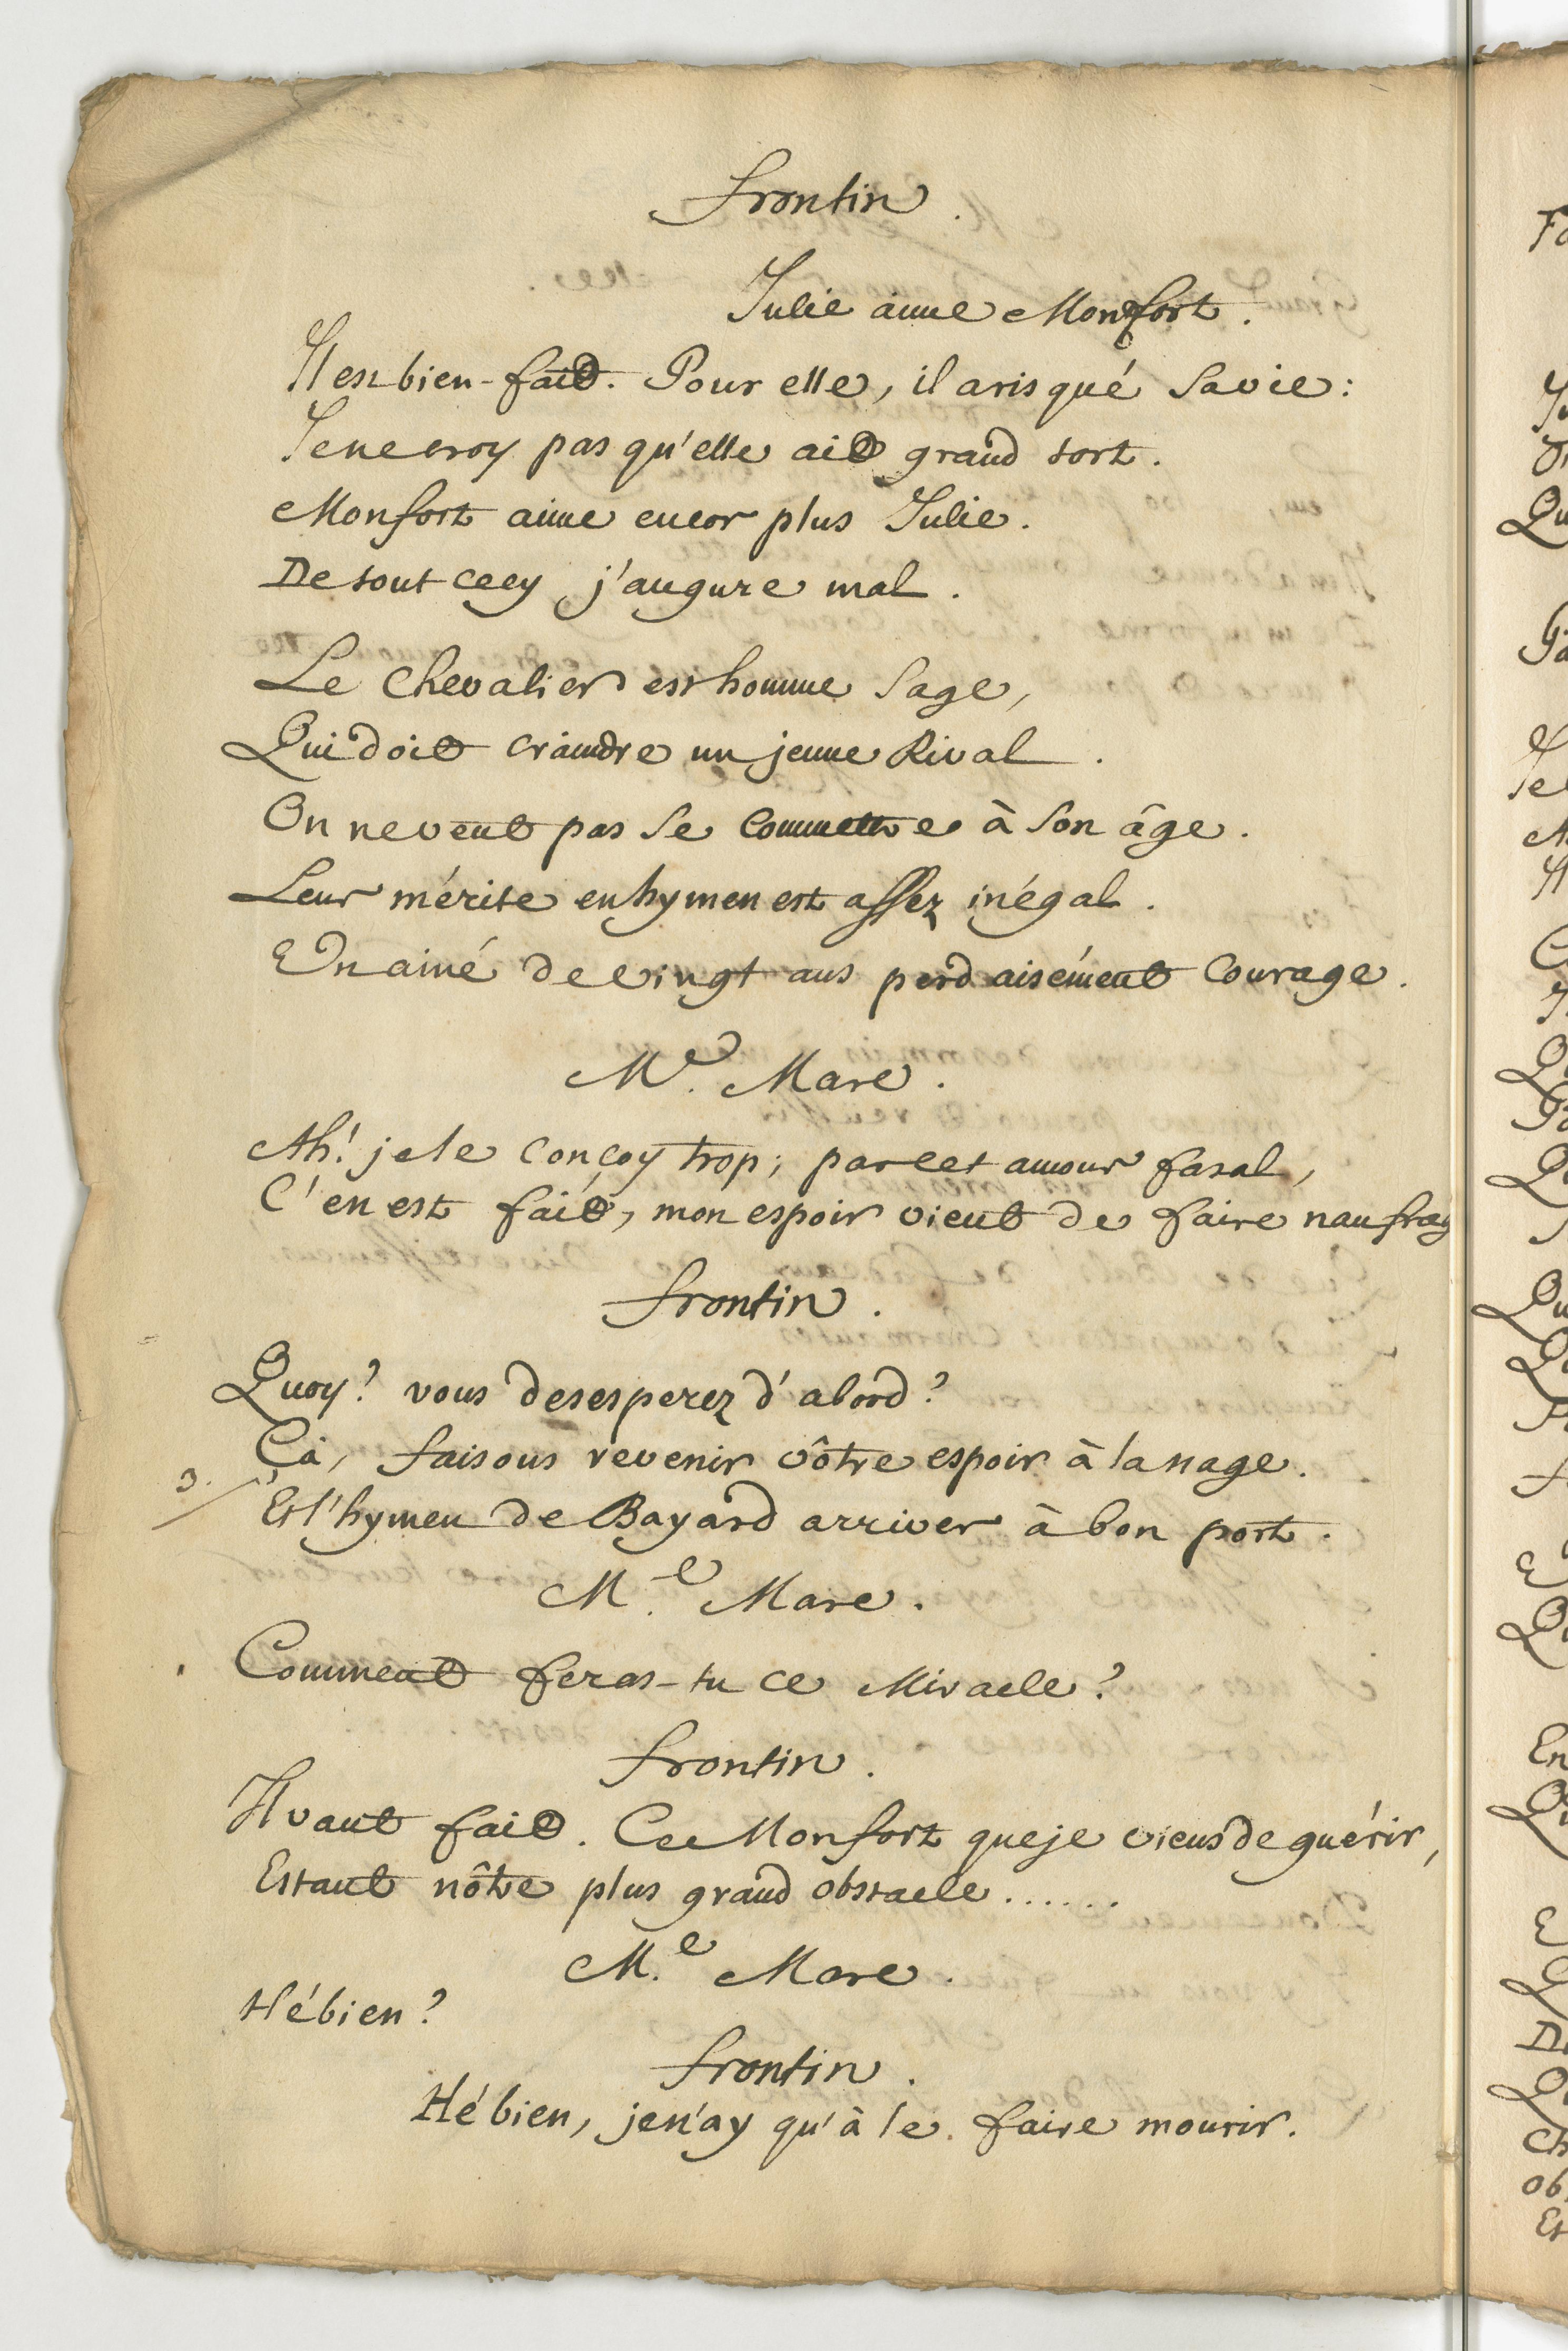 Frontin.
Julie aime Monfort.
Il est bien-fait. Pour elle, il a risqué sa vie:
Je ne croy pas qu'elle ait grand tort.
Monfort aime encor plus Julie.
De tout cecy j'augure mal.
Le Chevalier est homme sage,
Qui doit craindre un jeune Rival.
On ne veut pas se commettre à son âge.
Leur mérite en hymen est assez inégal.
Un ainé de vingt ans perd aisément courage.
M.e Mare.
Ah! je le conçoy trop; par cet amour fatal,
C'en est fait, mon espoir vient de faire naufrag
Frontin.
Quoy? vous desesperez d'abord?
Çà, faisons revenir vôtre espoir à la nage.
Et l'hymen de Bayard arriver à bon port.
M.e Mare.
Comment feras-tu ce Miracle?
Frontin.
Il vaut fait. Ce Monfort que je viens de guérir,
Estant nôtre plus grand obstacle......
M.e Mare.
Hé bien?
Frontin.
Hé bien, je n'ay qu'à le faire mourir.